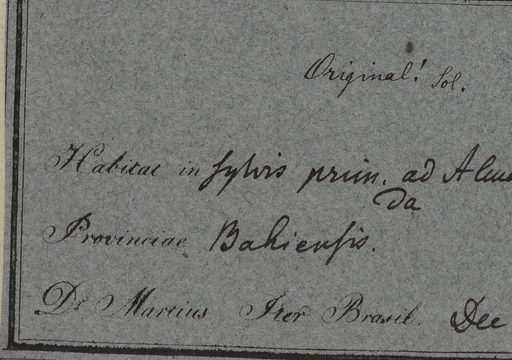 Original! Sol.
Habitat in sylvis prim. ad Alme
da
Provinciae Bahiensis.
Dr. Martius Iter Brasil. Dec